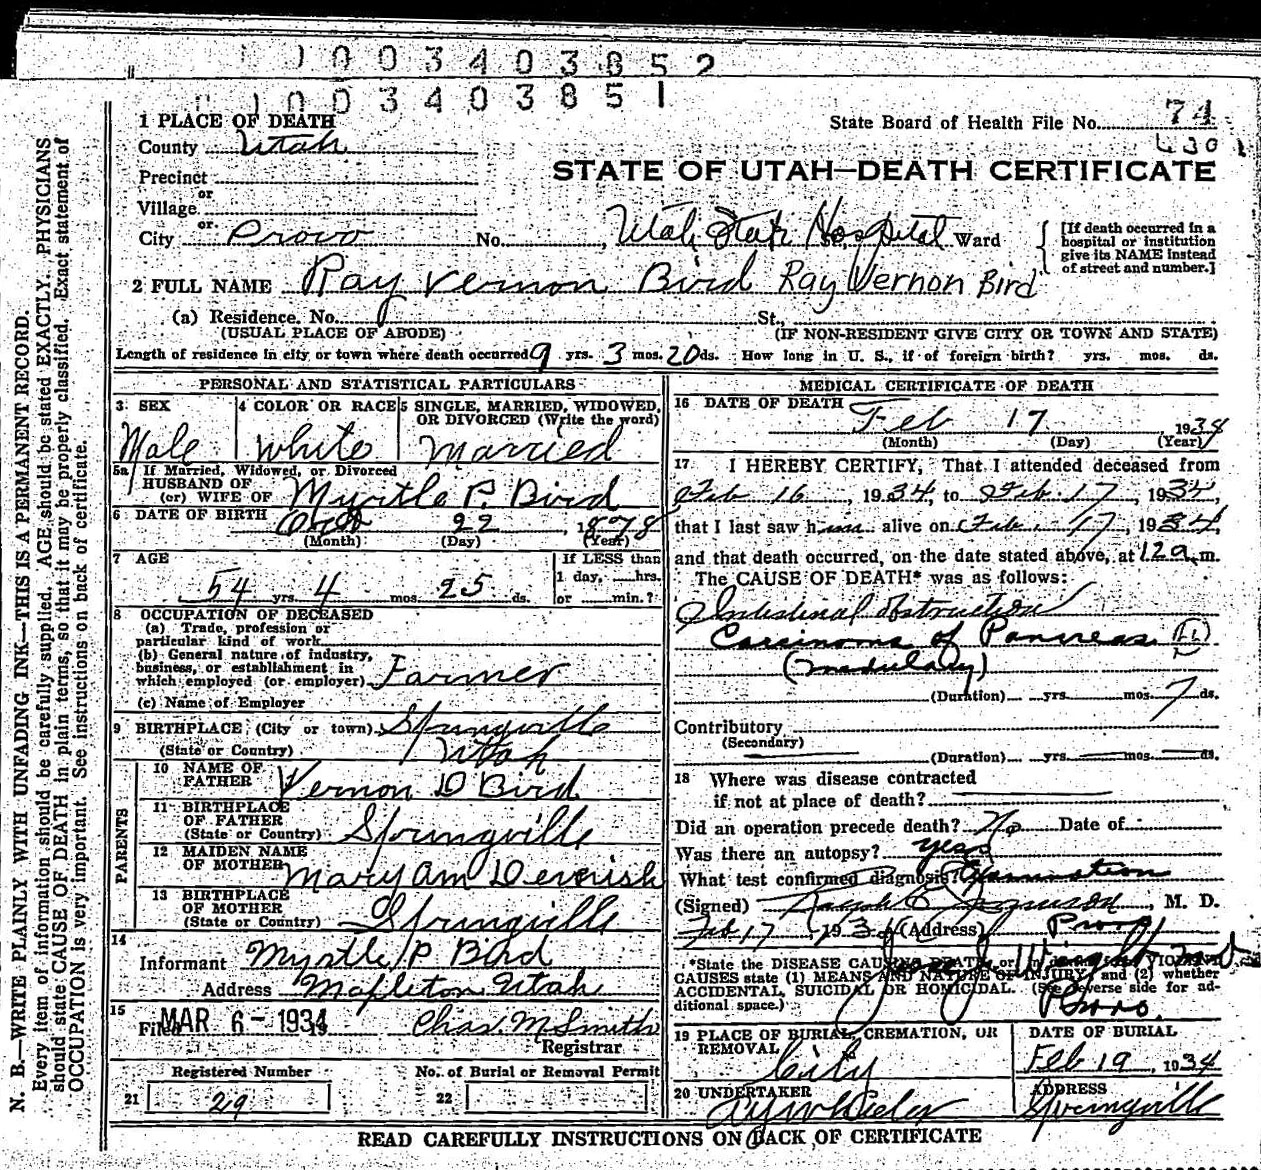 1 0 0 3 4 0 3 8 5 2
1 0 0 3 4 0 3 8 5 1
1 PLACE OF DEATH
State Board of Health File No. 74
County Utah
STATE OF UTAH—DEATH CERTIFICATE
Precinct
or
Village
or
City Provo No. , Utah State Hospital St., Ward
[If death occurred in a hospital or institution give its NAME instead of street and number.]
2 FULL NAME Ray Vernon Bird Ray Vernon Bird
(a) Residence. No. St.,
(USUAL PLACE OF ABODE) (IF NON-RESIDENT GIVE CITY OR TOWN AND STATE)
Length of residence in city or town where death occurred 9 yrs. 3 mos. 20 ds. How long in U. S., if of foreign birth? yrs. mos. ds.
PERSONAL AND STATISTICAL PARTICULARS
3 SEX Male
4 COLOR OR RACE White
5 SINGLE, MARRIED, WIDOWED, OR DIVORCED (Write the word) Married
5a If Married, Widowed, or Divorced
HUSBAND OF
(or) WIFE OF Myrtle P. Bird
6 DATE OF BIRTH Oct 22 1878
(Month) (Day) (Year)
7 AGE
54 yrs. 4 mos. 25 ds.
If LESS than
1 day, hrs.
or min.?
8 OCCUPATION OF DECEASED
(a) Trade, profession or
particular kind of work
(b) General nature of industry,
business, or establishment in
which employed (or employer) Farmer
(c) Name of Employer
9 BIRTHPLACE (City or town) Springville
(State or Country) Utah
PARENTS
10 NAME OF FATHER Vernon D Bird
11 BIRTHPLACE OF FATHER
(State or Country) Springville
12 MAIDEN NAME OF MOTHER Mary Am Deverish
13 BIRTHPLACE OF MOTHER
(State or Country) Springville
14
Informant Myrtle P. Bird
Address Mapleton Utah
15
Filed MAR 6 - 1934 Chas. M Smith
Registrar
Registered Number
21 29
No. of Burial or Removal Permit
22
MEDICAL CERTIFICATE OF DEATH
16 DATE OF DEATH
Feb 17 1934
(Month) (Day) (Year)
17 I HEREBY CERTIFY, That I attended deceased from
Feb 16, 1934, to Feb. 17, 1934,
that I last saw him alive on Feb. 17, 1934,
and that death occurred, on the date stated above, at 12 a.m.
The CAUSE OF DEATH* was as follows:
Intestinal obstruction
Carcinoma of Pancreas
(Duration) yrs. mos. 7 ds.
Contributory
(Secondary)
(Duration) yrs. mos. ds.
18 Where was disease contracted
if not at place of death?
Did an operation precede death? No Date of
Was there an autopsy? yes
What test confirmed diagnosis? Examination
(Signed) , M. D.
Feb 17, 1934 (Address) Provo
*State the DISEASE CAUSING DEATH, or in deaths from VIOLENT CAUSES state (1) MEANS AND NATURE OF INJURY, and (2) whether ACCIDENTAL, SUICIDAL OR HOMICIDAL. (See reverse side for additional space.)
Provo.
19 PLACE OF BURIAL, CREMATION, OR REMOVAL
City
DATE OF BURIAL
Feb 19, 1934
20 UNDERTAKER
A Y Wheeler
ADDRESS
Springville
READ CAREFULLY INSTRUCTIONS ON BACK OF CERTIFICATE
N. B.—WRITE PLAINLY WITH UNFADING INK—THIS IS A PERMANENT RECORD.
Every item of information should be carefully supplied. AGE should be stated EXACTLY. PHYSICIANS
should state CAUSE OF DEATH in plain terms, so that it may be properly classified. Exact statement of
OCCUPATION is very important. See instructions on back of certificate.